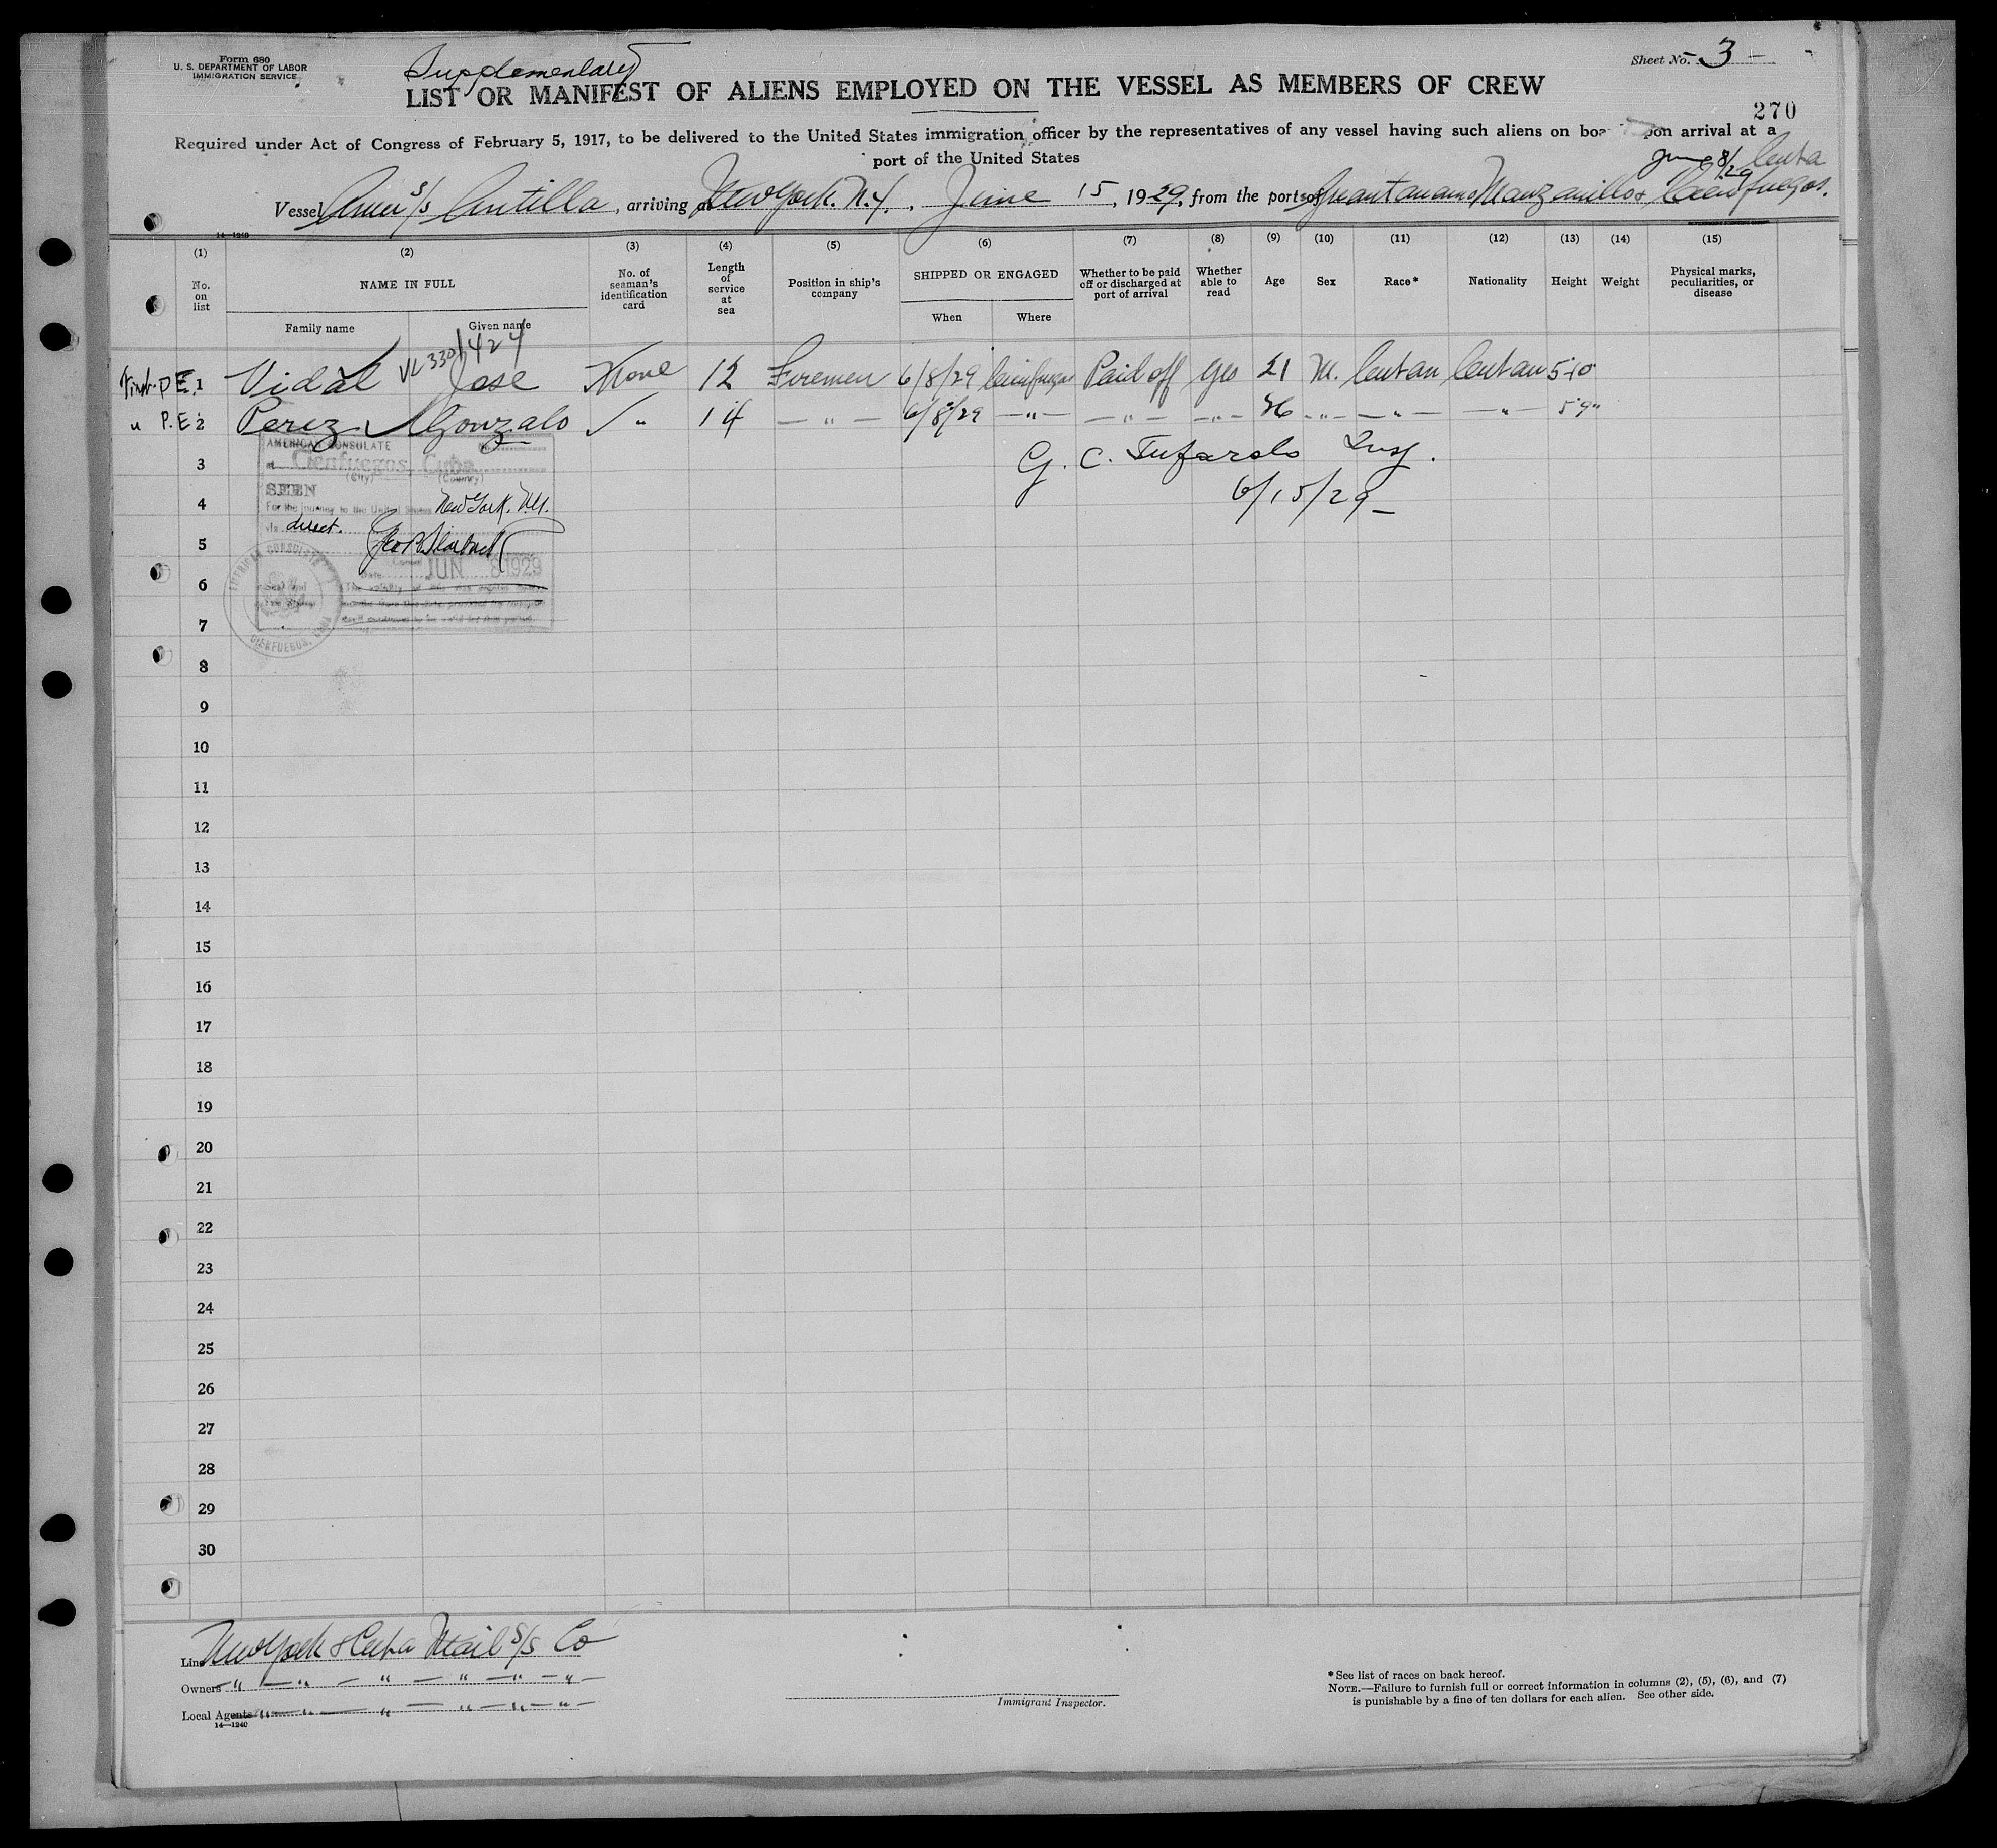 Form 680
U. S. DEPARTMENT OF LABOR
IMMIGRATION SERVICE
Supplementary
Sheet No. 3 -
LIST OR MANIFEST OF ALIENS EMPLOYED ON THE VESSEL AS MEMBERS OF CREW
270
Required under Act of Congress of February 5, 1917, to be delivered to the United States immigration officer by the representatives of any vessel having such aliens on upon arrival at a
port of the United States
June 8/29 Cuba
Vessel Amer S/S Antilla, arriving at New York. N.Y., June 15, 1929, from the ports of Guantanamo Manzanillo & Cienfuegos.
14—1240
(1) (2) (3) (4) (5) (6) (7) (8) (9) (10) (11) (12) (13) (14) (15)
No. on list NAME IN FULL No. of seaman's identification card Length of service at sea Position in ship's company SHIPPED OR ENGAGED Whether to be paid off or discharged at port of arrival Whether able to read Age Sex Race* Nationality Height Weight Physical marks, peculiarities, or disease
Family name Given name When Where
VL 330/424
P.E. 1 Vidal Jose None 12 Firemen 6/8/29 Cienfuegos Paid off Yes 21 M. Cuban Cuban 5-10
" P.E 2 Perez Gonzalo ✓ " 14 — " — 6/8/29 — " — — " — — " — 26 — " — — " — — " — 5'9"
3
G. C. Tufarolo Insp.
6/15/29 -
AMERICAN CONSULATE
at Cienfuegos, Cuba
(City) (Country)
SEEN
For the journey to the United States New York. N.Y.
via direct.
Consul
Date JUN 8 1929
AMERICAN CONSULATE
CIENFUEGOS, CUBA
4
5
6
7
8
9
10
11
12
13
14
15
16
17
18
19
20
21
22
23
24
25
26
27
28
29
30
Line New York & Cuba Mail S/S Co
Owners — " — " — " — " — " — " —
Local Agents " — " — " — " — " — " —
14—1240
Immigrant Inspector.
* See list of races on back hereof.
NOTE.—Failure to furnish full or correct information in columns (2), (5), (6), and (7)
is punishable by a fine of ten dollars for each alien. See other side.